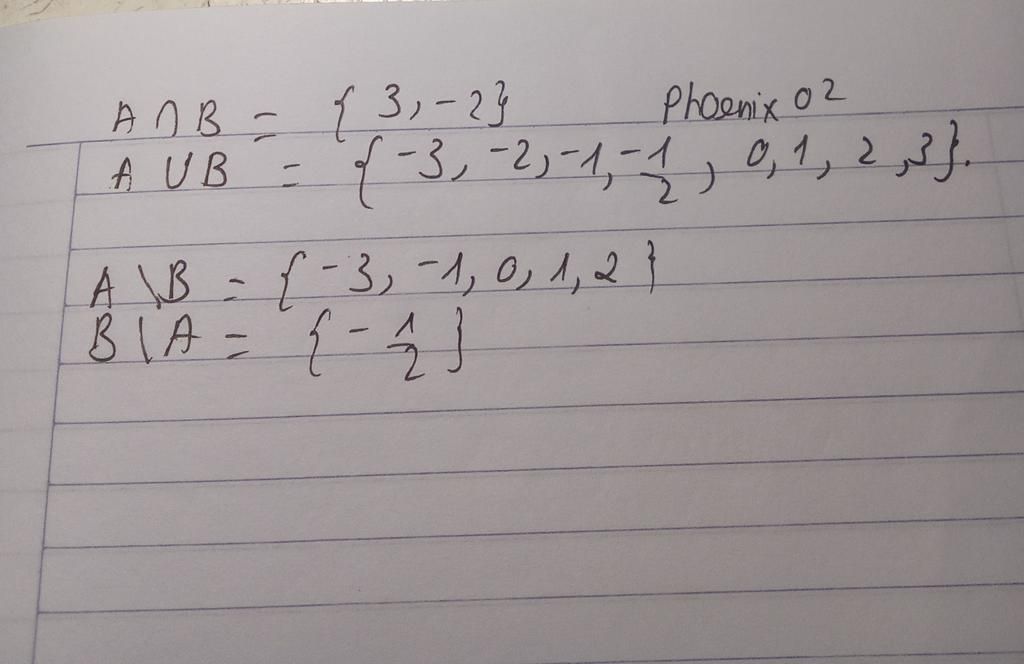 A ∩ B = { 3, -2} Phoenix 02
A ∪ B = { -3, -2, -1, -1/2, 0, 1, 2, 3}.
A \ B = { -3, -1, 0, 1, 2 }
B \ A = { - 1/2 }